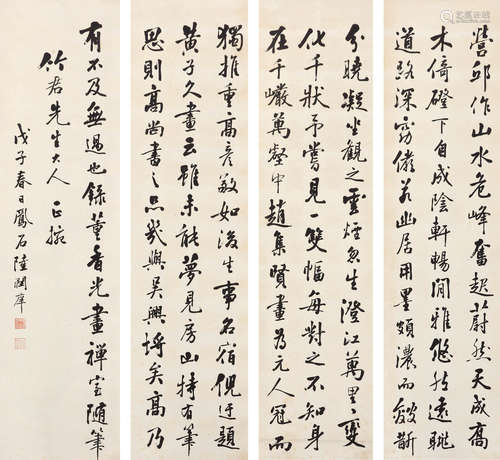 營邱作山水危峰奮起蔚然天成喬
木倚磴下自成陰軒暢閒雅悠然遠眺
道路深窈儼若幽居用墨頗濃而皴斮
分曉凝坐觀之雲煙忽生澄江萬里變
化千狀予嘗見一雙幅每對之不知身
在千巖萬壑中趙集賢畫為元人冠而
獨推重高彥敬如後生事名宿倪迂題
黃子久畫云雖未能夢見房山特有筆
思則高尚書之品幾與吳興埒矣高乃
有不及無過也錄董香光畫禪室隨筆
竹君先生大人 正
戊子春日鳳石陸潤庠